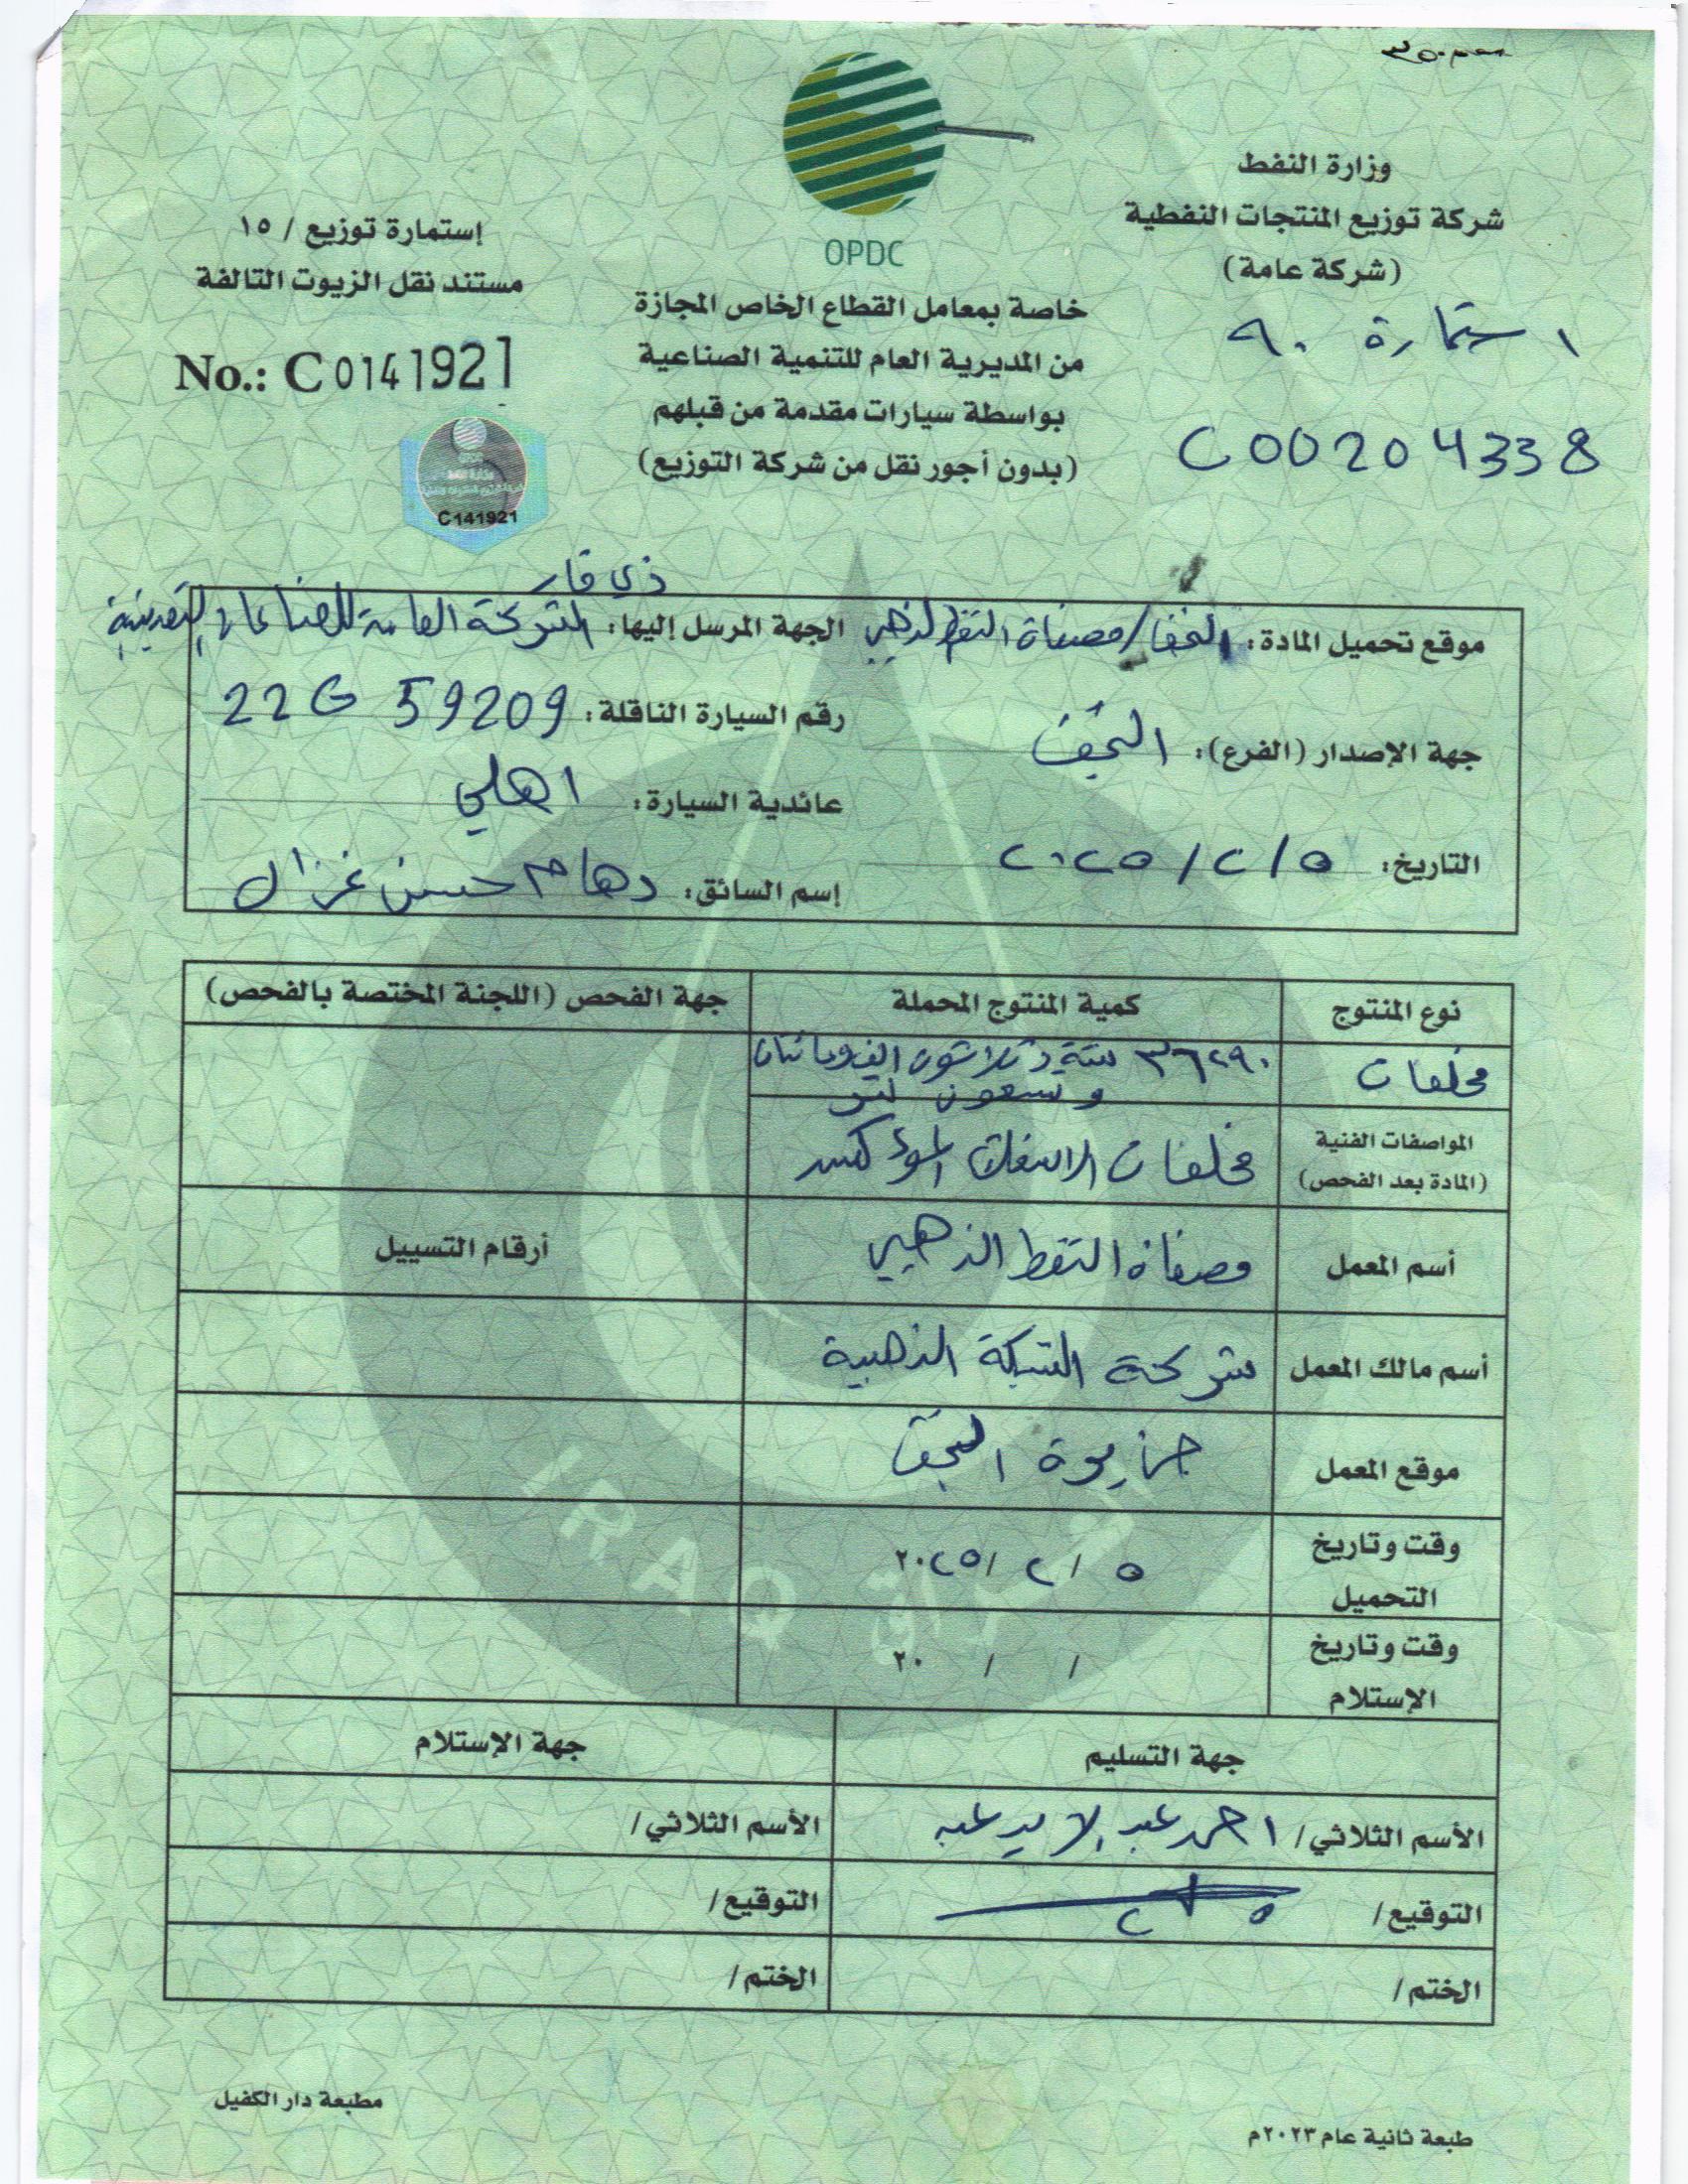 وزارة النفط
شركة توزيع المنتجات النفطية
(شركة عامة)
استمارة ٩٠
C00204338
OPDC
خاصة بمعامل القطاع الخاص المجازة
من المديرية العام للتنمية الصناعية
بواسطة سيارات مقدمة من قبلهم
(بدون أجور نقل من شركة التوزيع)
إستمارة توزيع / ١٥
مستند نقل الزيوت التالفة
No.: C 0141921
C141921
موقع تحميل المادة: النجف/مصفاة النفط الذهبي
جهة الإصدار (الفرع): النجف
التاريخ: ٥/٢/٢٠٢٥
ذي قار
الجهة المرسل إليها: الشركة العامة للصناعات التعدينية
رقم السيارة الناقلة: 22G 59209
عائدية السيارة: اهلي
إسم السائق: دهام حسن غزال
نوع المنتوج كمية المنتوج المحملة جهة الفحص (اللجنة المختصة بالفحص)
مخلفات ٣٦٢٩٠ ستة وثلاثون الف ومائتان
وتسعون لتر
المواصفات الفنية
(المادة بعد الفحص) مخلفات الاسفلت المؤكسد
أسم المعمل مصفاة النفط الذهبي أرقام التسييل
أسم مالك المعمل شركة الشبكة الذهبية
موقع المعمل النجف
وقت وتاريخ
التحميل ٥ / ٢ / ٢٠٢٥
وقت وتاريخ
الإستلام / / ٢٠
جهة التسليم جهة الإستلام
الأسم الثلاثي/ احمد عبد الأسم الثلاثي/
التوقيع/ التوقيع/
الختم/ الختم/
طبعة ثانية عام ٢٠٢٣م
مطبعة دار الكفيل
IRAQ